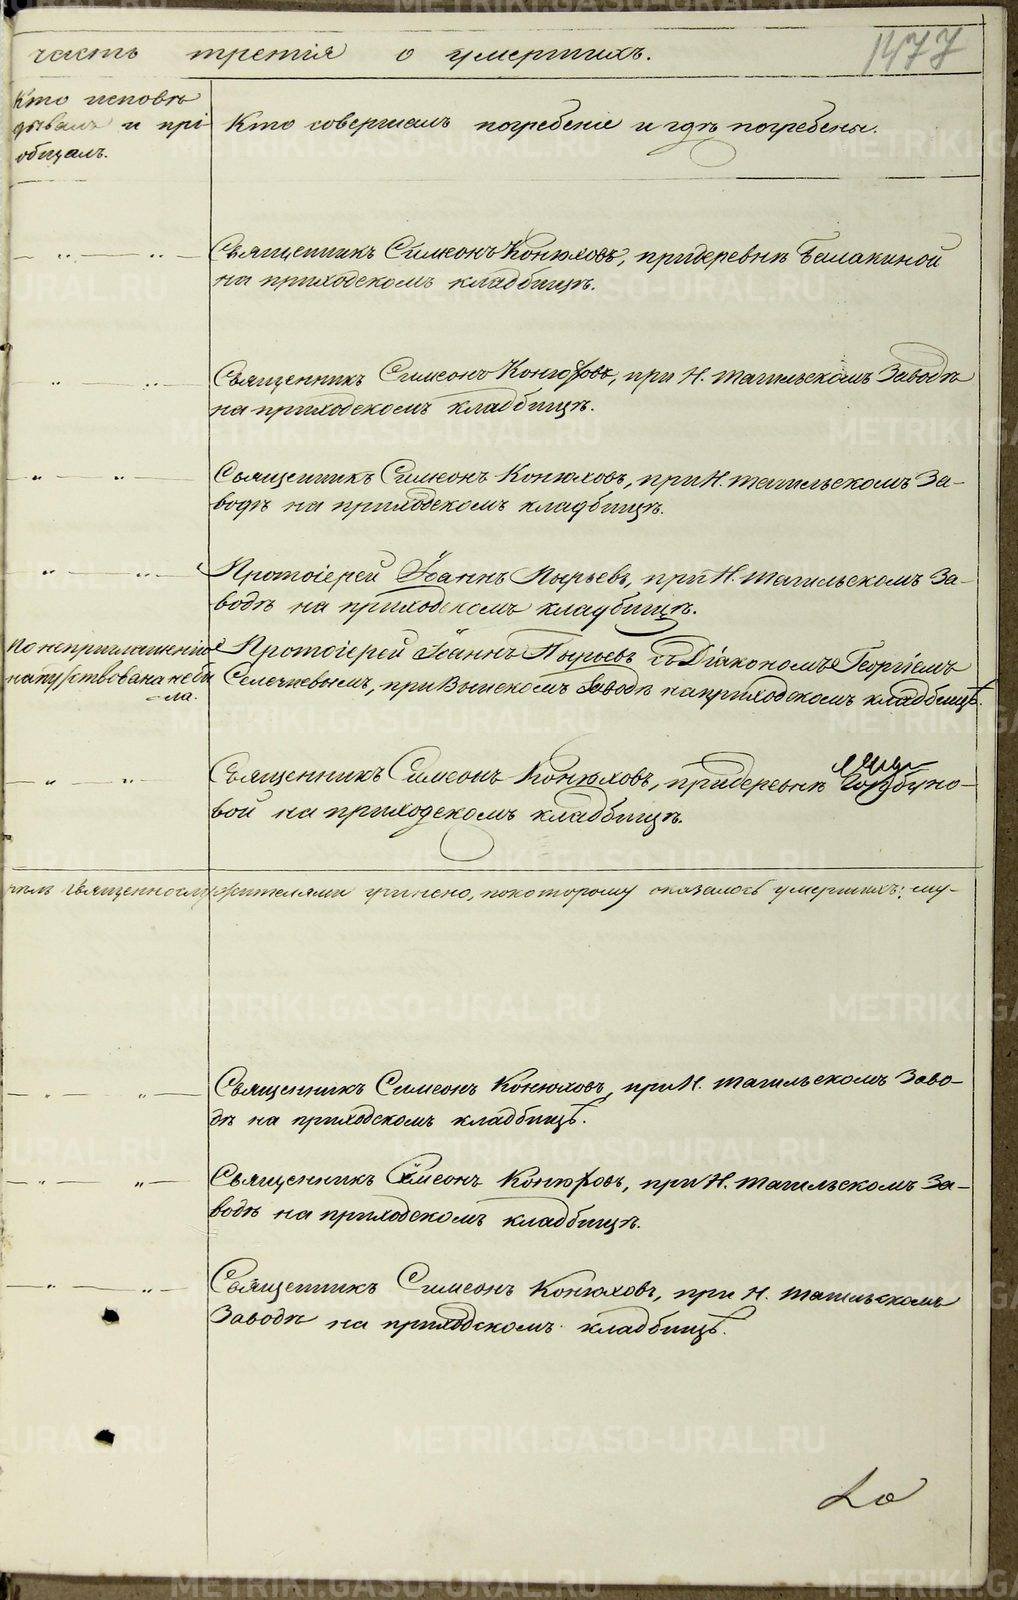 часть третія о умершихъ.
1477
Кто исповѣ-
дывалъ и прі-
общалъ.
Кто совершалъ погребеніе и гдѣ погребены.
Священникъ Симеонъ Конюховъ, при деревнѣ Балакиной
на приходскомъ кладбищѣ.
Священникъ Симеонъ Конюховъ, при Н. Тагильскомъ Заводѣ
на приходскомъ кладбищѣ.
Священникъ Симеонъ Конюховъ, при Н. Тагильскомъ За-
водѣ на приходскомъ кладбищѣ.
Протоіерей Іоаннъ Пырьевъ, при Н. Тагильскомъ За-
водѣ на приходскомъ кладбищѣ.
По неприглашенію
напутствована не бы
-ла.
Протоіерей Іоаннъ Пырьевъ съ Діакономъ Георгіемъ
при Выйскомъ Заводѣ на приходскомъ кладбищѣ.
Священникъ Симеонъ Конюховъ, при деревнѣ Горбуно-
вой на приходскомъ кладбищѣ.
священнослужителями учинено, по которому оказалось умершихъ: му-
Священникъ Симеонъ Конюховъ, при Н. Тагильскомъ Заво-
дѣ на приходскомъ кладбищѣ.
Священникъ Симеонъ Конюховъ, при Н. Тагильскомъ За-
водѣ на приходскомъ кладбищѣ.
Священникъ Симеонъ Конюховъ, при Н. Тагильскомъ
Заводѣ на приходскомъ кладбищѣ.
METRIKI.GASO-URAL.RU